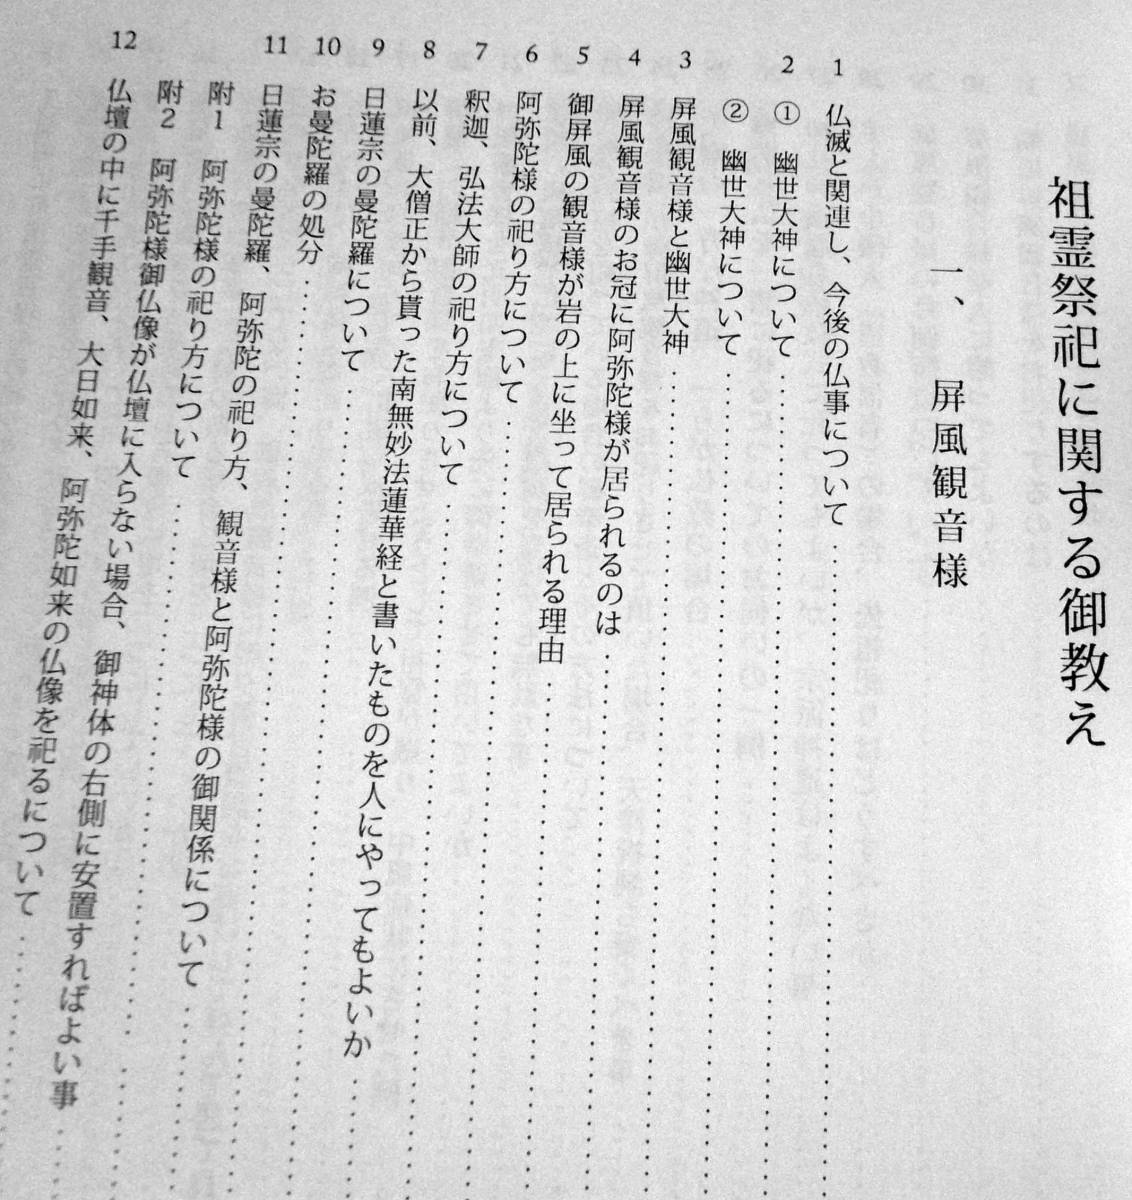 祖霊祭祀に関する御教え
一、 屏風観音様
1 仏滅と関連し、今後の仏事について
2 ① 幽世大神について
② 幽世大神について
3 屏風観音様と幽世大神
4 屏風観音様のお冠に阿弥陀様が居られるのは
5 御屏風の観音様が岩の上に坐って居られる理由
6 阿弥陀様の祀り方について
7 釈迦、弘法大師の祀り方について
8 以前、大僧正から貰った南無妙法蓮華経と書いたものを人にやってもよいか
9 日蓮宗の曼陀羅について
10 お曼陀羅の処分
11 日蓮宗の曼陀羅、阿弥陀の祀り方、観音様と阿弥陀様の御関係について
附1 阿弥陀様の祀り方について
附2 阿弥陀様御仏像が仏壇に入らない場合、御神体の右側に安置すればよい事
12 仏壇の中に千手観音、大日如来、阿弥陀如来の仏像を祀るについて